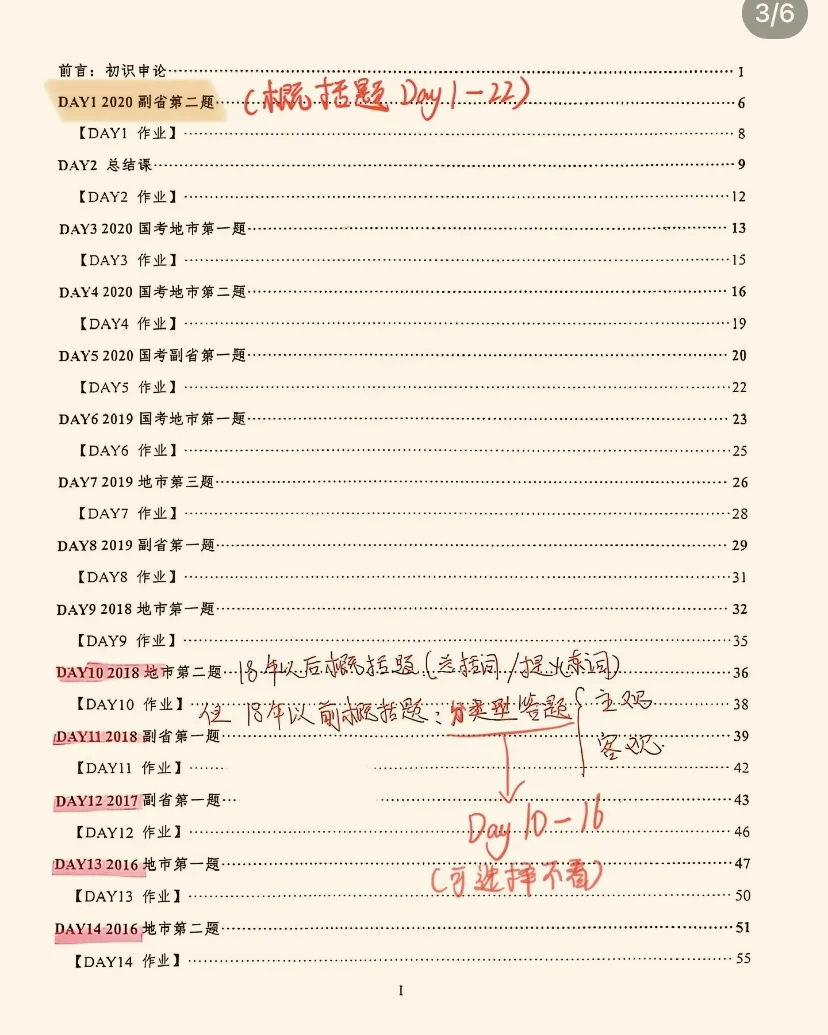 3/6
前言：初识申论 1
DAY1 2020 副省第二题 (概括题 Day 1-22) 6
【DAY1 作业】 8
DAY2 总结课 9
【DAY2 作业】 12
DAY3 2020 国考地市第一题 13
【DAY3 作业】 15
DAY4 2020 国考地市第二题 16
【DAY4 作业】 19
DAY5 2020 国考副省第一题 20
【DAY5 作业】 22
DAY6 2019 国考地市第一题 23
【DAY6 作业】 25
DAY7 2019 地市第三题 26
【DAY7 作业】 28
DAY8 2019 副省第一题 29
【DAY8 作业】 31
DAY9 2018 地市第一题 32
【DAY9 作业】 35
DAY10 2018 地市第二题 18年以后概括题(总括词/提炼词) 36
【DAY10 作业】 38
但 18年以前概括题：分类型答题 { 主观
客观
DAY11 2018 副省第一题 39
【DAY11 作业】 42
DAY12 2017 副省第一题 43
【DAY12 作业】 46
Day 10-16
DAY13 2016 地市第一题 47
(可选择不看)
【DAY13 作业】 50
DAY14 2016 地市第二题 51
【DAY14 作业】 55
I